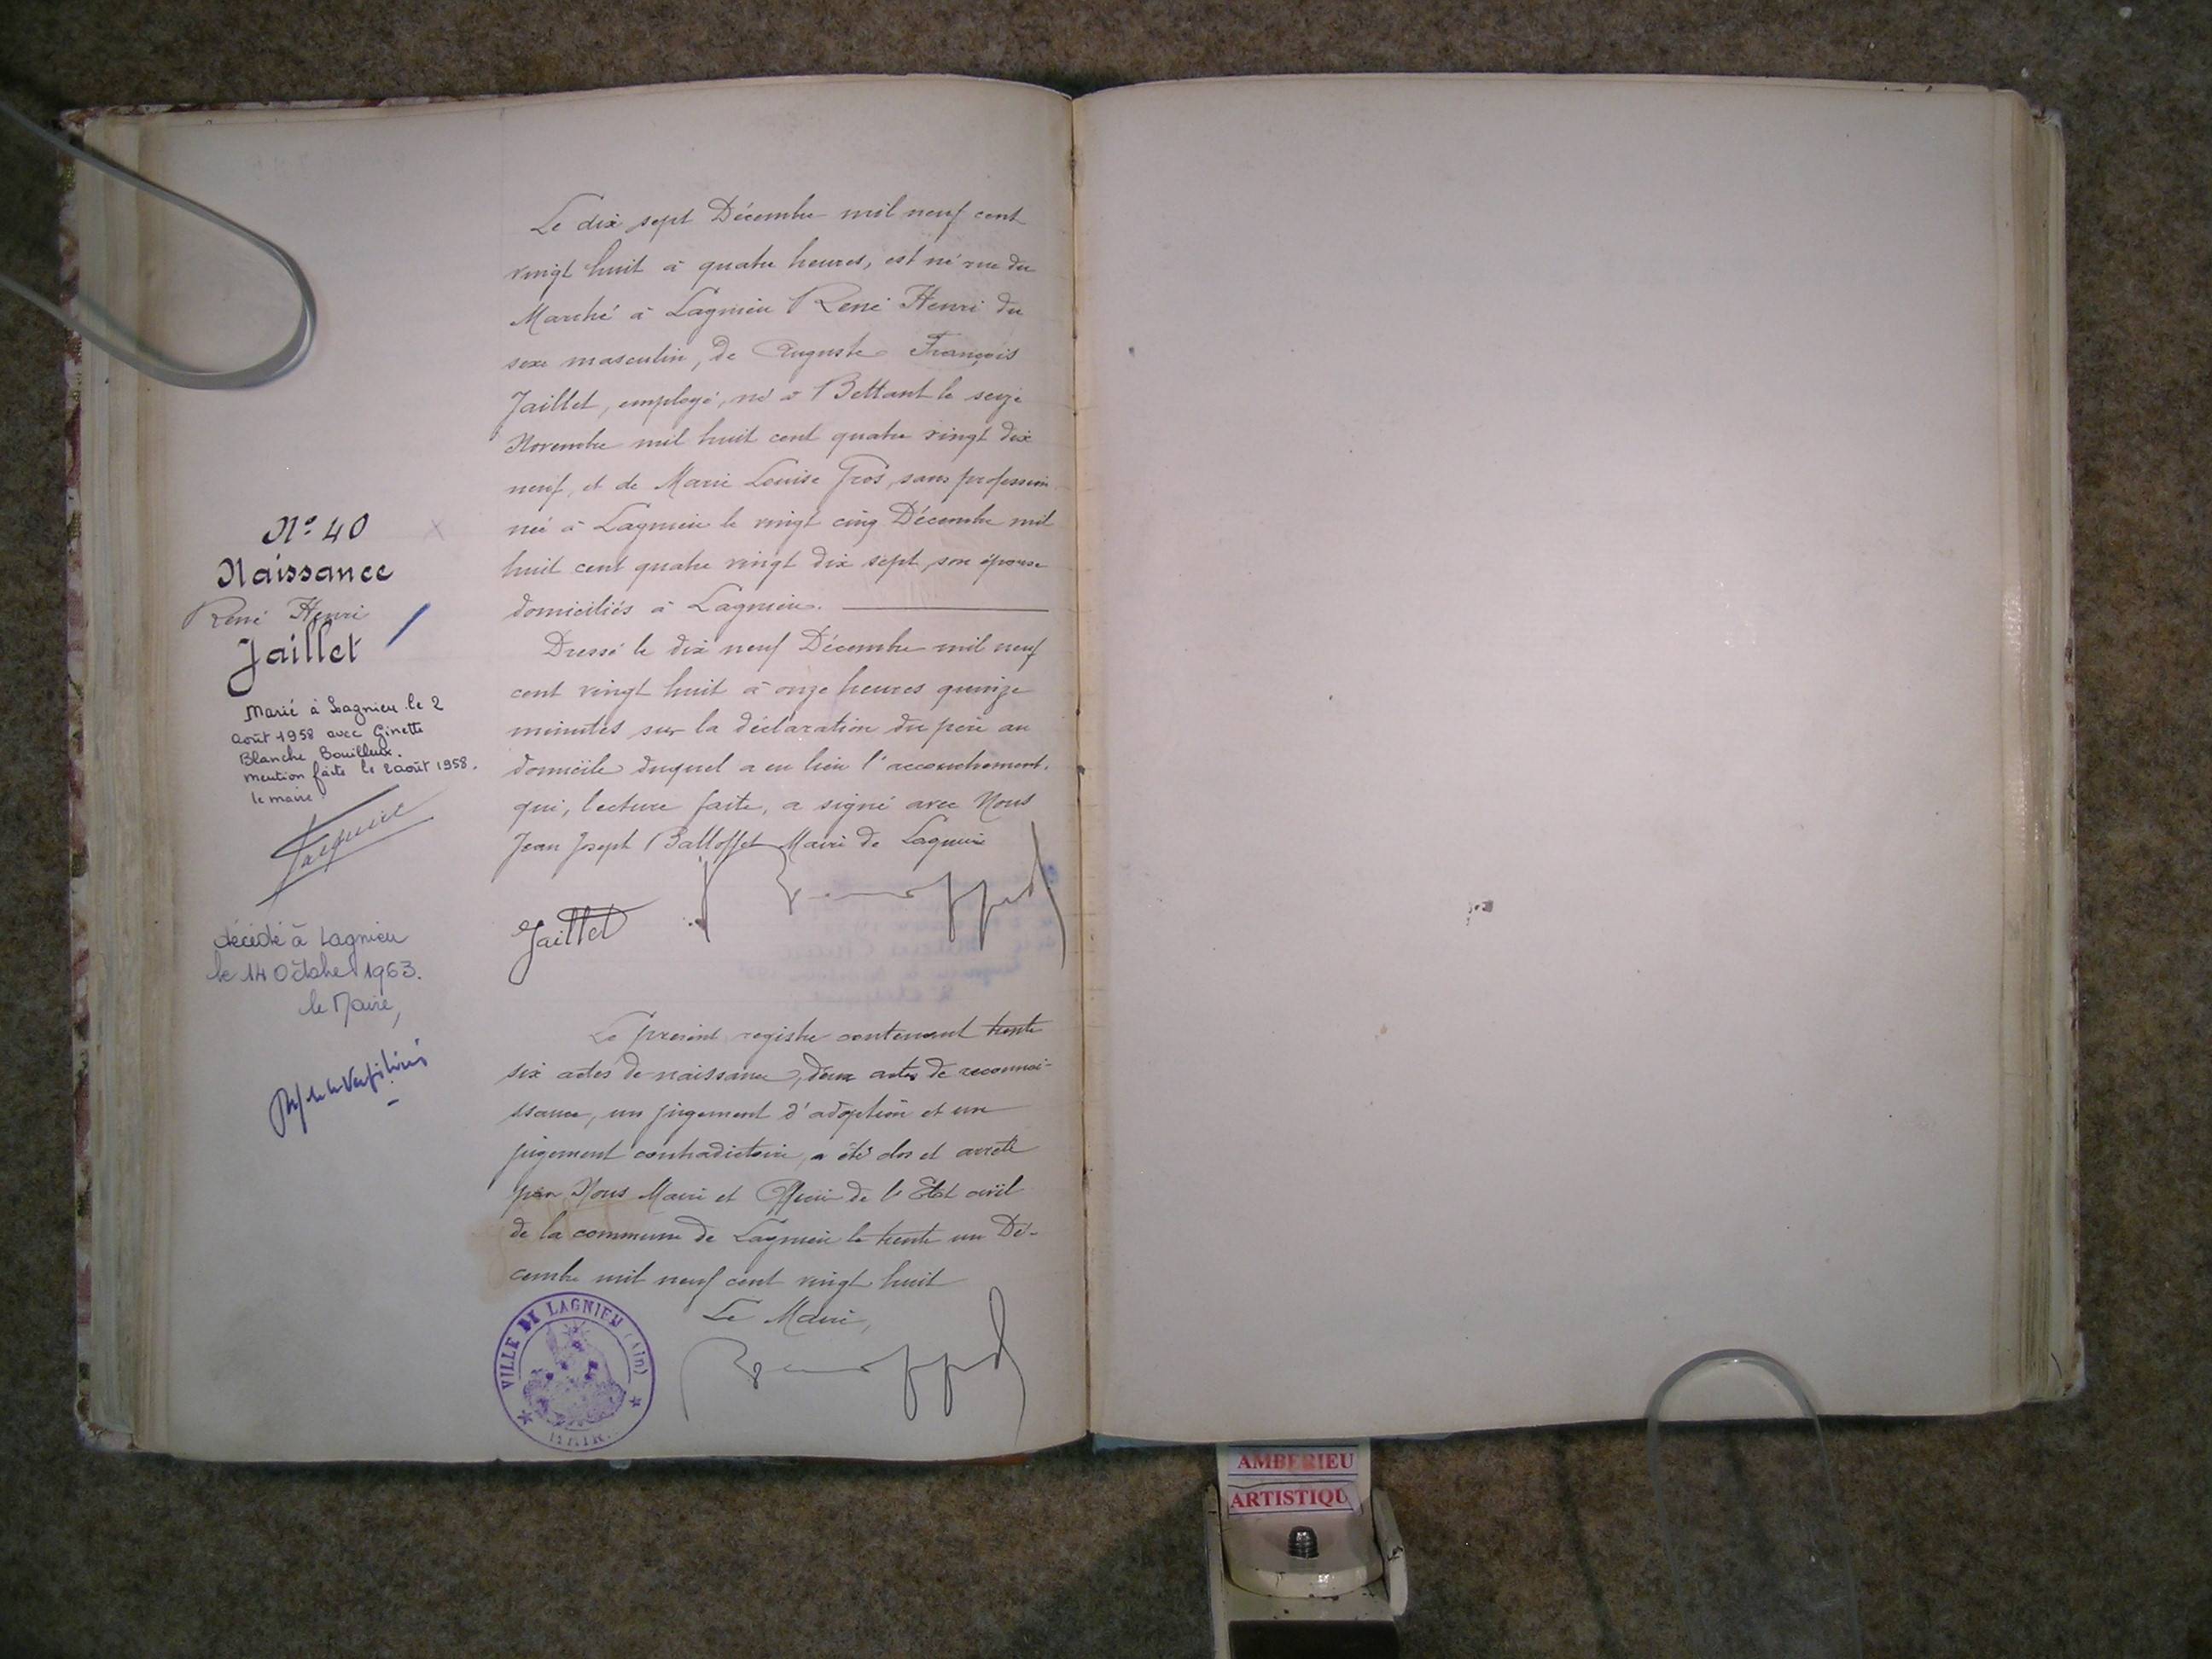 N° 40
Naissance
René Henri
Jaillet
Marié à Lagnieu le 2
août 1958 avec Ginette
Blanche Bouilloux.
mention faite le 2 août 1958.
le maire.
décédé à Lagnieu
le 14 Octobre 1963.
le Maire,
Le dix sept Décembre mil neuf cent
vingt huit à quatre heures, est né rue du
Marché à Lagnieu René Henri du
sexe masculin, de Auguste François
Jaillet, employé, né à Bettant le seize
Novembre mil huit cent quatre vingt dix
neuf, et de Marie Louise Gros, sans profession
née à Lagnieu le vingt cinq Décembre mil
huit cent quatre vingt dix sept, son épouse
domiciliés à Lagnieu.
Dressé le dix neuf Décembre mil neuf
cent vingt huit à onze heures quinze
minutes sur la déclaration du père au
domicile duquel a eu lieu l'accouchement.
qui, lecture faite, a signé avec Nous
Jean Joseph Balloffet Maire de Lagnieu
Jaillet
Le présent registre contenant trente
six actes de naissance, deux actes de reconnai-
ssance, un jugement d'adoption et un
jugement contradictoire, a été clos et arrêté
par Nous Maire et Officier de l'Etat civil
de la commune de Lagnieu le trente un Dé-
cembre mil neuf cent vingt huit
Le Maire,
VILLE DE LAGNIEU (Ain)
MAIR
AMBERIEU
ARTISTIQU